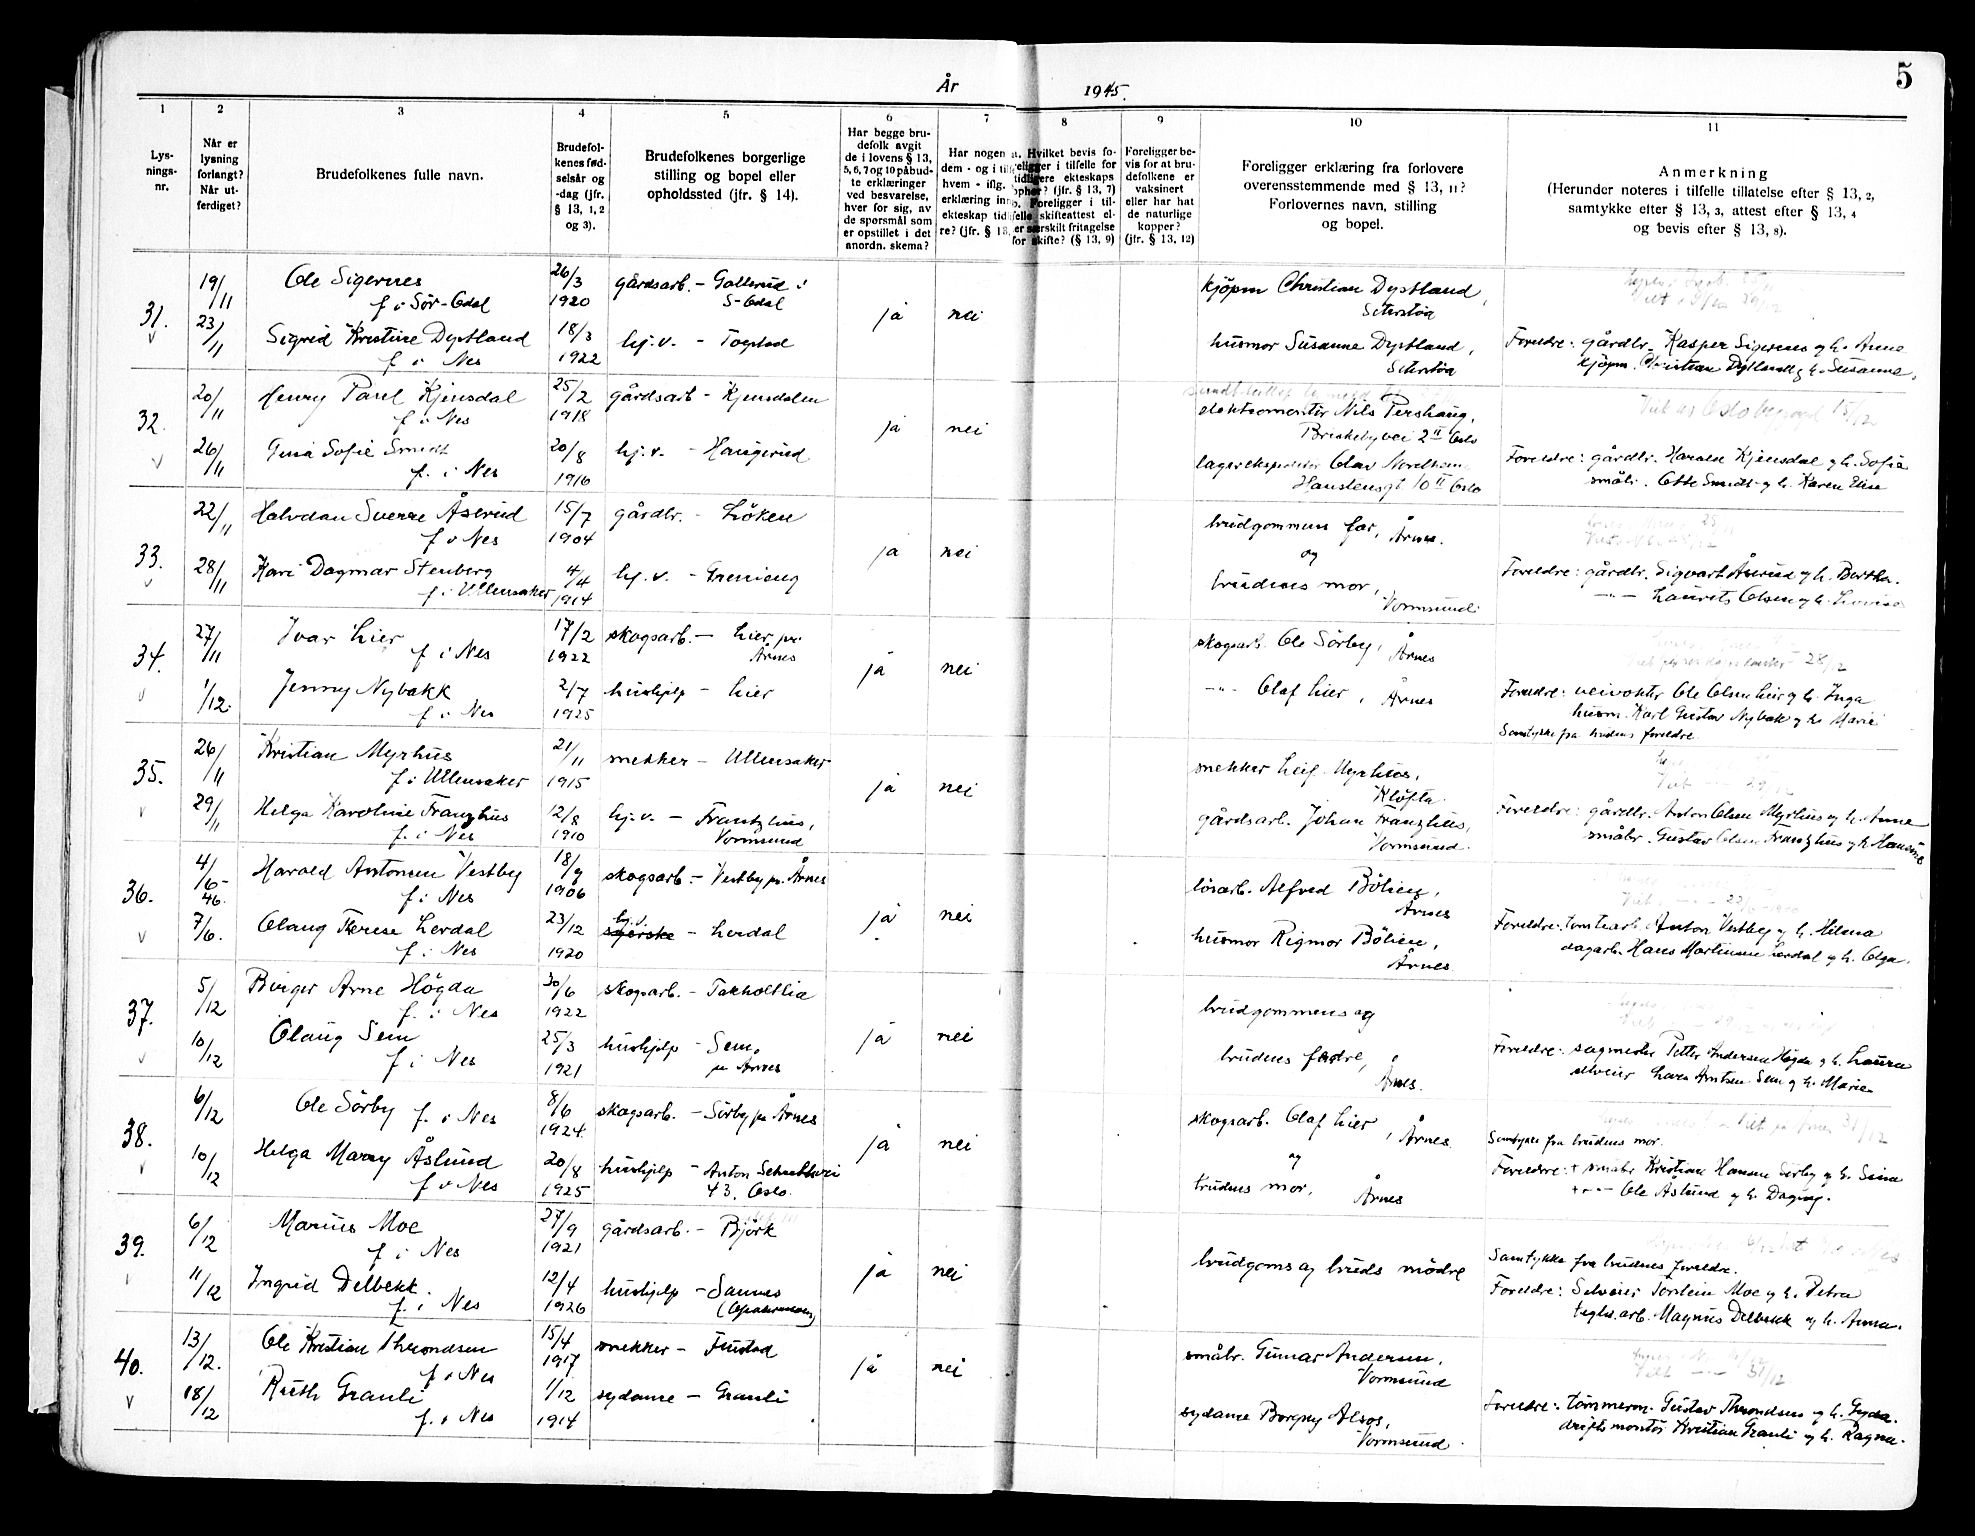 År 1945.
5
1 2 3 4 5 6 7 8 9 10 11
Lys-
nings-
nr.
Når er
lysning
forlangt?
Når ut-
ferdiget?
Brudefolkenes fulle navn.
Brudefol-
kenes fød-
selsår og
-dag (jfr.
§ 13, 1, 2
og 3).
Brudefolkenes borgerlige
stilling og bopel eller
opholdssted (jfr. § 14).
Har begge bru-
defolk avgit
de i lovens § 13,
5, 6, 7 og 10 påbud-
te erklæringer
ved besvarelse,
hver for sig, av
de spørsmål som
er opstillet i det
anordn. skema?
Har nogen
dem - og i
hvem - iflg.
erklæring
ekteskap
re? (jfr. § 13,
Hvilket bevis fo-
religger i tilfelle for
tidligere ekteskaps
ophør? (jfr. § 13, 7)
Foreligger i til-
felle skifteattest el-
ler særskilt fritagelse
for skifte? (§ 13, 9)
Foreligger be-
vis for at bru-
defolkene er
vaksinert
eller har hat
de naturlige
kopper?
(jfr. § 13, 12)
Foreligger erklæring fra forlovere
overensstemmende med § 13, 11?
Forlovernes navn, stilling
og bopel.
Anmerkning
(Herunder noteres i tilfelle tillatelse efter § 13, 2,
samtykke efter § 13, 3, attest efter § 13, 4
og bevis efter § 13, 8).
31. 19/11 Ole Sigernes 26/3 gårdsarb. - Gollerud i
f i Sør-Odal 1920 S-Odal
ja nei
kjöpm Christian Dystland,
23/11 Sigrid Kristine Dystland 18/3 hj.v. - Togstad
f i Nes 1922
husmor Susanne Dystland,
Foreldre: gårdbr. Kasper Sigernes og h. Anne
kjöpm. Christian Dystland og h. Susanne.
32. 20/11 Henry Paul Kjensdal 25/2 gårdsarb - Kjensdalen
f i Nes 1918
ja nei
elektromontör Nils Pershaug,
Briskebyvei 2 II Oslo
26/11 Gina Sofie Smidt 20/8 hj.v. - Haugerud
f. i Nes 1916
Olav Nordheim
Hanstensgt 10 II Oslo
Foreldre: gårdbr. Harald Kjensdal og h. Sofie
småbr. Otto Smidt og h. Karen Elise
33. 22/11 Halvdan Sverre Åserud 15/7 gårdbr. - Löken
f i Nes 1904
ja nei
brudgommens far, Årnes.
og
28/11 Kari Dagmar Stenberg 4/4 hj.v. -
f i Ullensaker 1914
brudens mor, Vormsund
Foreldre: gårdbr. Sigvart Åserud og h. Bertha.
-"- Laurits Olsen og h. Lovise
34. 27/11 Ivar Lier 17/2 skogsarb. - Lier pr.
f i Nes 1922 Årnes
ja nei
skogsarb. Ole Sörby, Årnes
1/12. Jenny Nybakk 2/7 hushjelp - Lier
f i Nes 1925
-"- Olaf Lier, Årnes
28/12
Foreldre: veivokter Ole Olsen Lier og h. Inga
husm. Karl Gustav Nybak og h. Marie
Samtykke fra brudens foreldre.
35. 26/11 Kristian Myrhus 21/11 snekker - Ullensaker
f i Ullensaker 1915
ja nei
snekker Leif Myrhus,
Klöfta
29/11 Helga Karoline Franzhus 12/8 hj.v. - Frantzhus,
f. i Nes 1910 Vormsund
gårdsarb. Johan Franzhus,
Vormsund.
Foreldre: gårdbr. Anton Olsen Myrhus og h. Anne
småbr. Gustav Olsen Franzhus og h Hansine
36. 4/6-46. Harald Antonsen Vestby 18/9 skogsarb. - Vestby pr. Årnes
f i Nes 1906
ja nei
lösarb. Alfred Bölien,
Årnes
7/6. Olaug Terese Lerdal 23/12 hj.v. - Lerdal
f i Nes 1920
husmor Rigmor Bölien,
Årnes
Foreldre: tomtearb Anton Vestby og h. Helena
dagarb. Hans Martinsen Lerdal og h. Olga.
37. 5/12 Birger Arne Högda 30/6 skogsarb. - Takholtlia
f. i Nes 1922
ja nei
brudgommens og
10/12 Olaug Sem 25/3 hushjelp - Sem,
f i Nes 1921 pr Årnes
brudens fedre,
Årnes.
Foreldre: sagmester Petter Andersen Högda og h. Laura
selveier Lars Arntsen Sem og h. Marie
38. 6/12 Ole Sörby f. i Nes 8/6 skogsarb. - Sörby pr Årnes
1924.
ja nei
skogsarb. Olaf Lier, Årnes
og
10/12 Helga Mary Åslund 20/8 hushjelp - Anton
f i Nes 1925 43, Oslo.
brudens mor, Årnes
Samtykke fra brudens mor.
Foreldre: + småbr Kristian Hansen Sörby og h. Sina
+ -"- Ole Åslund og h. Dagny.
39. 6/12 Marius Moe 27/9 gårdsarb. - Björk
f i Nes 1921
ja nei
brudgoms og bruds mödre
11/12 Ingrid Delbekk. 12/4 hushjelp - Sannes
f. i Nes 1926
Samtykke fra brudens foreldre.
Foreldre: Selveier Torstein Moe og h. Petra
teglv.arb. Magnus Delbekk og h. Anna.
40. 13/12. Ole Kristian Throndsen 15/4 snekker - Finstad
f i Nes 1917
ja nei
småbr. Gunnar Andersen,
Vormsund
18/12 Ruth Granli 1/12 sydame - Granli
f. i Nes 1914
sydame Borgny Alsos,
Vormsund.
31/12
Foreldre: tömmerm. Gustav Throndsen og h. Gyda.
driftsmontör Kristian Granli og h. Ragna.